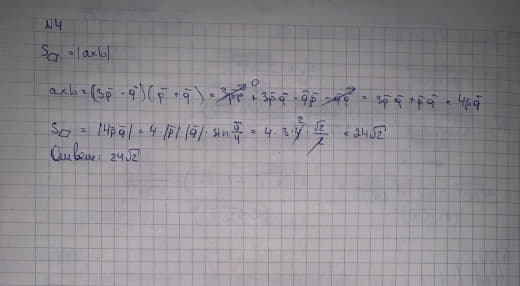 №4
S▱ = |a×b|
a×b = (3p̄ - q̄)(p̄ + q̄) = 3p̄p̄ ⁰ + 3p̄q̄ - q̄p̄ - q̄q̄ = 3p̄q̄ + p̄q̄ = 4p̄q̄
S▱ = |4p̄q̄| = 4·|p̄||q̄|·sin π/4 = 4·3·4 ²·√2/2 = 24√2
Ответ: 24√2